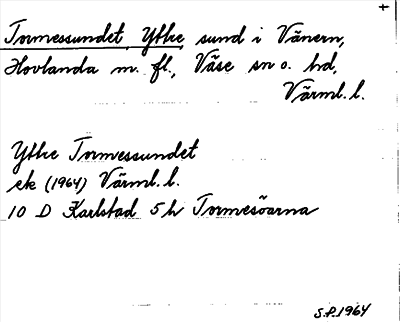 +
Tormessundet Yttre sund i Vänern,
Hovlanda m. fl., Väse sn o. hd,
Värml. l.
Yttre Tormessundet
ek (1964) Värml. l.
10 D Karlstad 5 h Tormesöarna
S.P. 1964